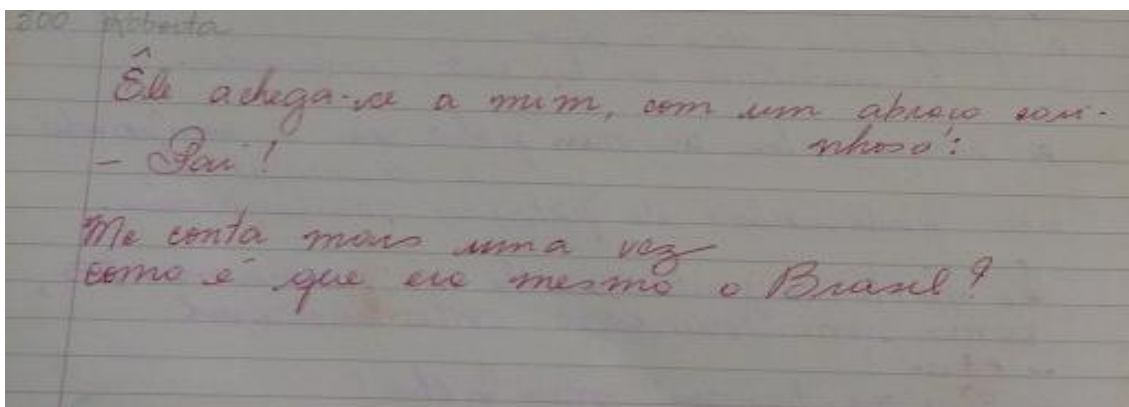 200. Roberta
Êle achega-se a mim, com um abraço cari-
nhoso:
- Pai!
Me conta mais uma vez
como é que era mesmo o Brasil?